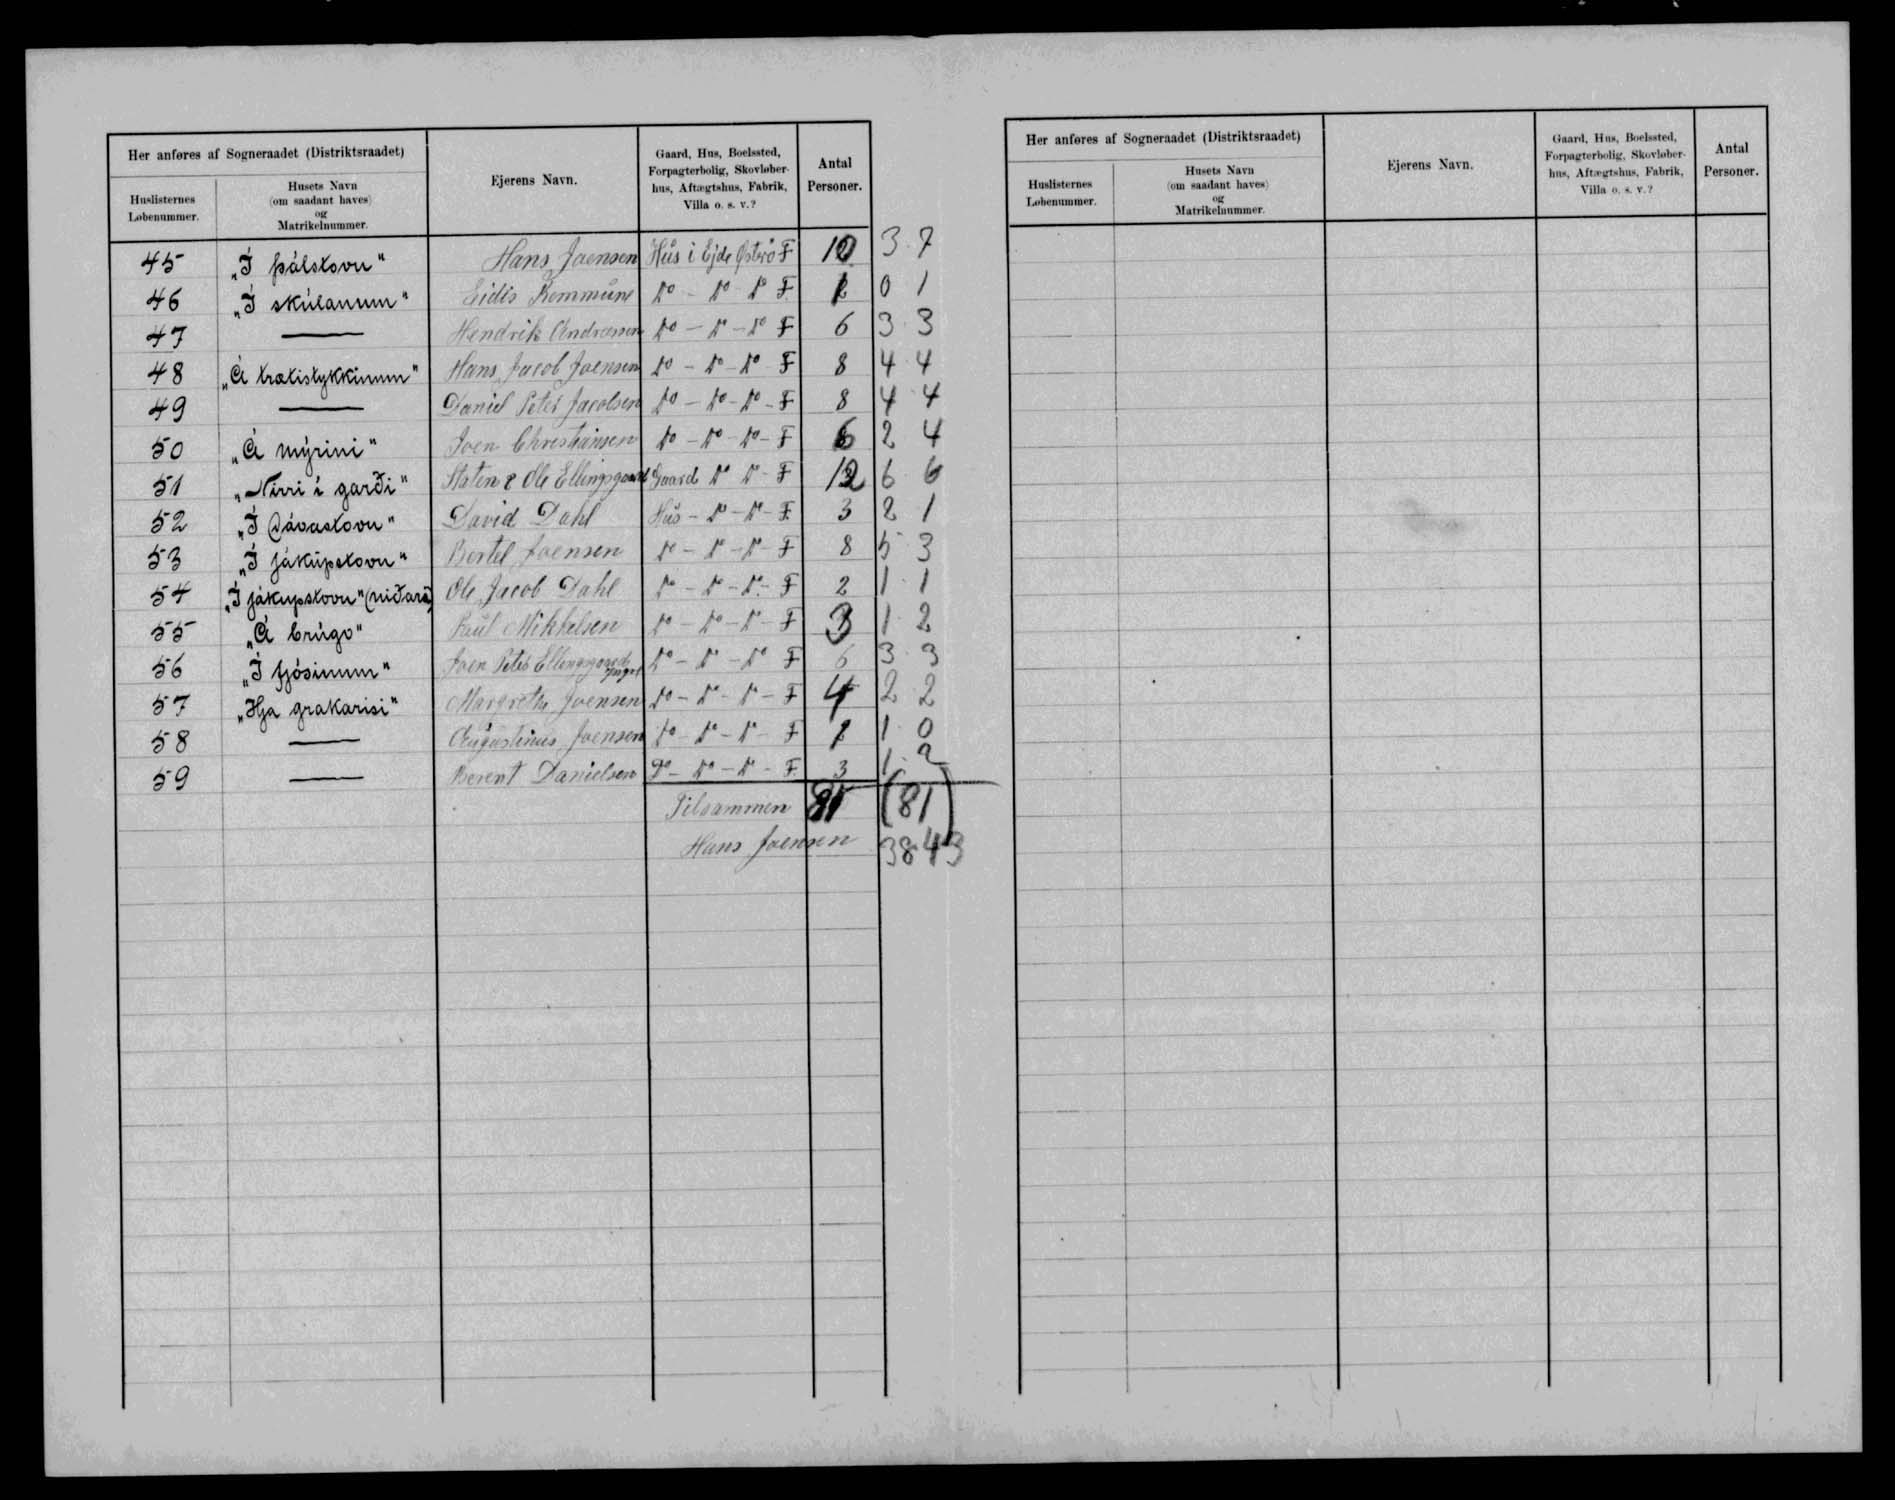 Her anføres af Sogneraadet (Distriktsraadet)
Huslisternes Løbenummer.
Husets Navn (om saadant haves) og Matrikelnummer.
Ejerens Navn.
Gaard, Hus, Boelssted, Forpagterbolig, Skovløberhus, Aftægtshus, Fabrik, Villa o. s. v.?
Antal Personer.
45 „Í pálstovu“ Hans Joensen Hus i Ejde Øströ F 10 3 7
46 „Í skúlanum“ Eidis Kommune Do - Do Do F. 1 0 1
47 — Hendrik Andreasen Do - Do - Do F 6 3 3
48 „Á trætistykkinum“ Hans Jacob Joensen Do - Do - Do F 8 4 4
49 — Daniel Peter Jacobsen Do - Do - Do - F 8 4 4
50 „Á mýrini“ Joen Christiansen Do - Do - Do - F 6 2 4
51 „Nirri í garði“ Ole Ellingsgaard Gaard Do Do - F 12 6 6
52 „Í Dávastovu“ David Dahl Hus - Do - Do - F. 3 2 1
53 „Í jákúpstovu“ Bertel Joensen Do - Do - Do - F 8 5 3
54 „Í jákupstovu“ (niðara) Ole Jacob Dahl Do - Do - Do - F 2 1 1
55 „Á brúgv“ Poul Mikkelsen Do - Do - Do - F 3 1 2
56 „Í fjósinum“ Joen Peter Ellingsgaard Do - Do - Do F 6 3 3
57 „Hja grakarisi“ Margrethe Joensen Do - Do - Do - F 4 2 2
58 — Augustinus Joensen Do - Do - Do - F 1 1 0
59 — Berent Danielsen Do - Do - Do - F. 3 1 2
Tilsammen 81 (81)
Hans Joensen 38 43
Her anføres af Sogneraadet (Distriktsraadet)
Huslisternes Løbenummer.
Husets Navn (om saadant haves) og Matrikelnummer.
Ejerens Navn.
Gaard, Hus, Boelssted, Forpagterbolig, Skovløberhus, Aftægtshus, Fabrik, Villa o. s. v.?
Antal Personer.